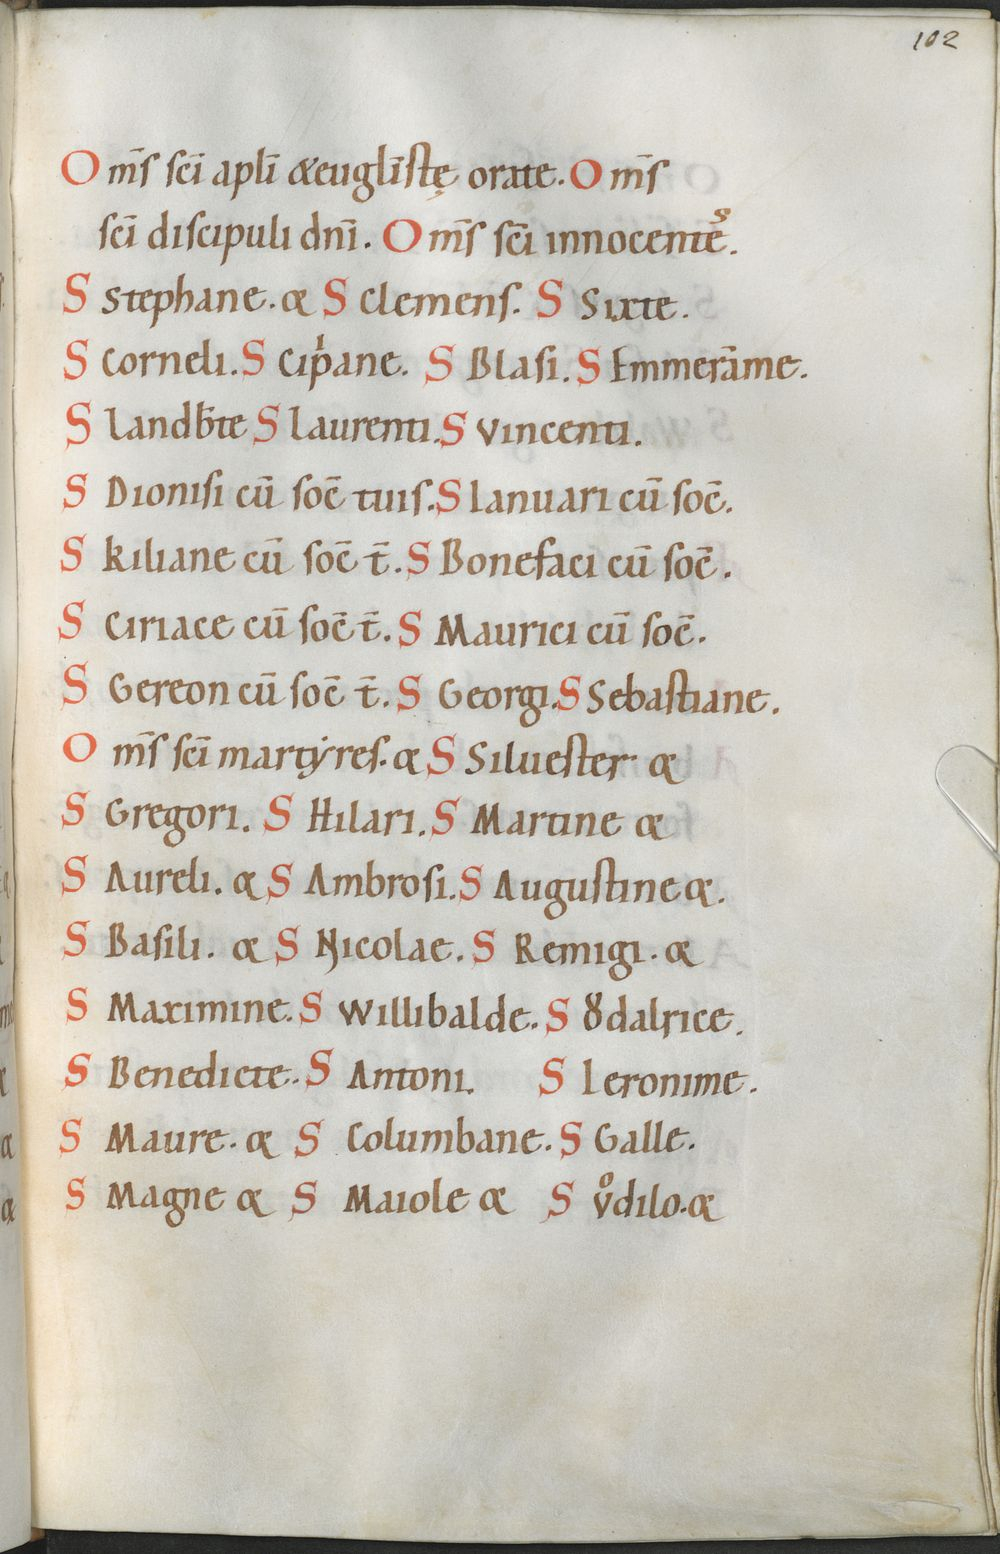 102
Om̄s sc̄i apl̄i &eugl̄istę orate. Om̄s
sc̄i discipuli dn̄i. Om̄s sc̄i innocentēs.
S Stephane. α S Clemens. S Sixte.
S Corneli. S Cip̍ane. S Blasi. S Emmerāme.
S Landb̄te S Laurenti. S Vincenti.
S Dionisi cū soc̄ tuis. S Ianuari cū soc̄.
S kiliane cū soc̄ t̄. S Bonefaci cū soc̄.
S Ciriace cū soc̄ t̄. S Maurici cū soc̄.
S Gereon cū soc̄ t̄. S Georgi. S Sebastiane.
Om̄s sc̄i martẏres. α S Siluester α
S Gregori. S Hilari. S Martine α
S Aureli. α S Ambrosi. S Augustine α.
S Basili. α S Nicolae. S Remigi. α
S Maximine. S Willibalde. S Ȣdalrice.
S Benedicte. S Antoni. S Ieronime.
S Maure. α S Columbane. S Galle.
S Magne α S Maiole α S vͦdilo. α